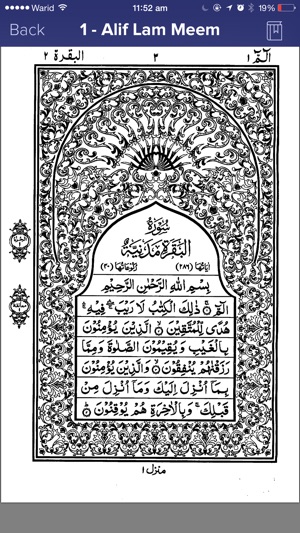 Warid 11:52 am 19%
Back 1 - Alif Lam Meem
الٓمّٓ ١ ٣ البقرة ٢
سُوْرَةُ
الْبَقَرَةِ مَدَنِيَّةٌ
اٰيَاتُهَا (٢٨٦) رُكُوْعَاتُهَا (٤٠)
بِسْمِ اللّٰهِ الرَّحْمٰنِ الرَّحِيْمِ
الٓمّٓ ۚ ذٰلِكَ الْكِتٰبُ لَا رَيْبَ ۛ فِيْهِ ۛ
هُدًى لِّلْمُتَّقِيْنَ ۙ الَّذِيْنَ يُؤْمِنُوْنَ
بِالْغَيْبِ وَيُقِيْمُوْنَ الصَّلٰوةَ وَمِمَّا
رَزَقْنٰهُمْ يُنْفِقُوْنَ ۙ وَالَّذِيْنَ يُؤْمِنُوْنَ
بِمَآ اُنْزِلَ اِلَيْكَ وَمَآ اُنْزِلَ مِنْ
قَبْلِكَ ۚ وَبِالْاٰخِرَةِ هُمْ يُوْقِنُوْنَ ؕ
منزل ١